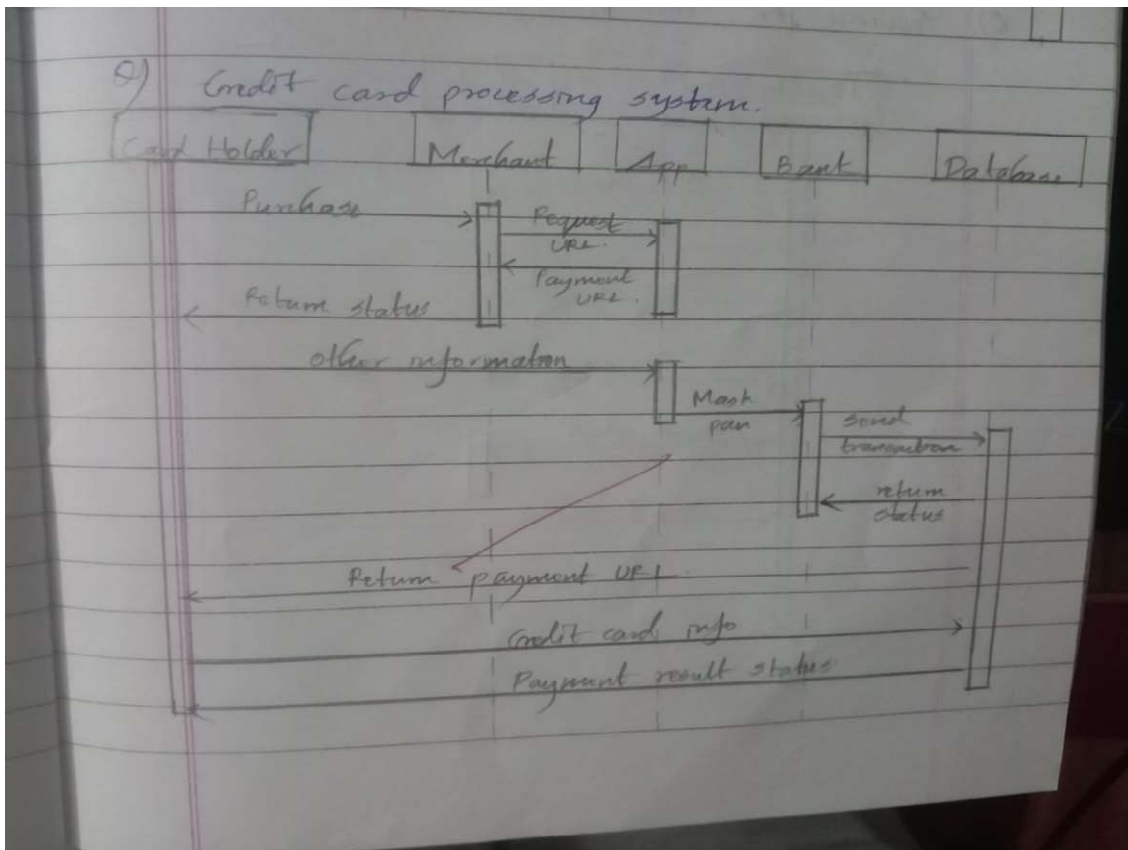 Q) Credit card processing system.
Card Holder Merchant App Bank Database
Purchase
Request
URL.
Payment
URL.
Return status
other information
Mask
pan
send
transaction
return
status
Return payment URL.
Credit card info
Payment result status